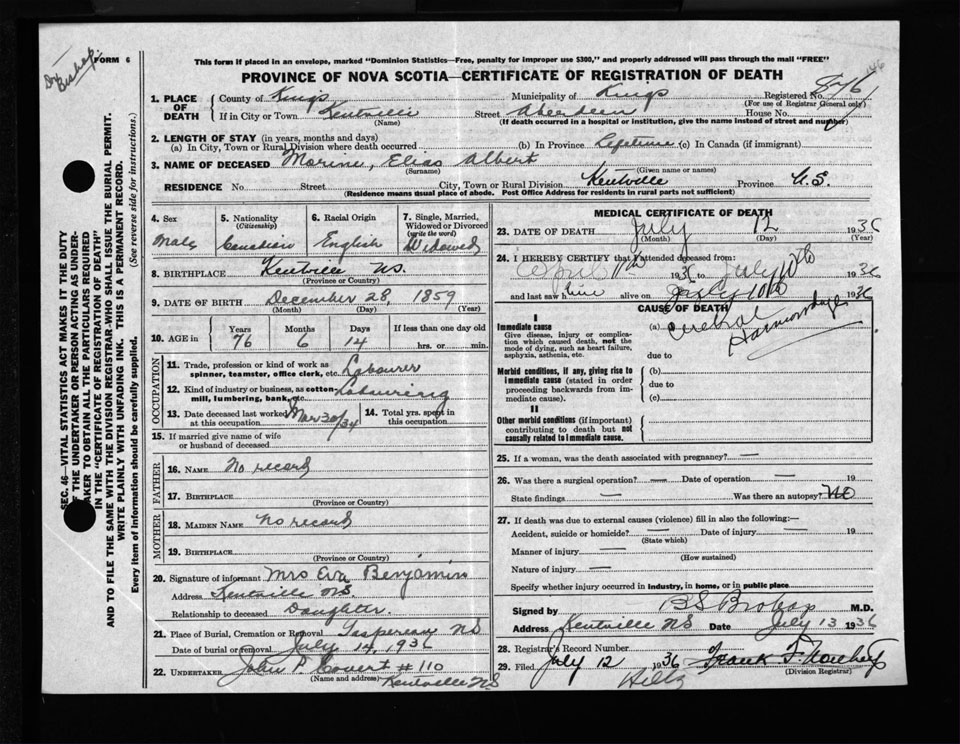 Dr Bishop.
FORM 6
This form if placed in an envelope, marked "Dominion Statistics—Free, penalty for improper use $300," and properly addressed will pass through the mail "FREE"
PROVINCE OF NOVA SCOTIA—CERTIFICATE OF REGISTRATION OF DEATH
1. PLACE OF DEATH
County of Kings Municipality of Kings Registered No. 846
(For use of Registrar General only)
If in City or Town Kentville Street Aberdeen House No.
(Name) (If death occurred in a hospital or institution, give the name instead of street and number)
2. LENGTH OF STAY (in years, months and days)
(a) In City, Town or Rural Division where death occurred (b) In Province Lifetime (c) In Canada (if immigrant)
3. NAME OF DECEASED Morine, Elias Albert
(Surname) (Given name or names)
RESIDENCE No. Street City, Town or Rural Division Kentville Province N.S.
(Residence means usual place of abode. Post Office Address for residents in rural parts not sufficient)
4. Sex
Male
5. Nationality
(Citizenship)
Canadian
6. Racial Origin
English
7. Single, Married, Widowed or Divorced
(write the word)
Widowed
8. BIRTHPLACE Kentville NS.
(Province or Country)
9. DATE OF BIRTH December 28, 1859
(Month) (Day) (Year)
10. AGE in
Years Months Days If less than one day old
76 6 14 hrs. or min.
OCCUPATION
11. Trade, profession or kind of work as
spinner, teamster, office clerk, etc. Labourer
12. Kind of industry or business, as cotton-
mill, lumbering, bank, etc. Labouring
13. Date deceased last worked at this occupation Mar 30/34
14. Total yrs. spent in this occupation
15. If married give name of wife
or husband of deceased
FATHER
16. NAME No record
17. BIRTHPLACE
(Province or Country)
MOTHER
18. MAIDEN NAME No record
19. BIRTHPLACE
(Province or Country)
20. Signature of informant Mrs Eva Benjamin
Address Kentville NS.
Relationship to deceased Daughter.
21. Place of Burial, Cremation or Removal Gaspereau NS
Date of burial or removal July 14, 1936
22. UNDERTAKER John P. Covert # 110
(Name and address) Kentville NS
MEDICAL CERTIFICATE OF DEATH
23. DATE OF DEATH July 12 1936
(Month) (Day) (Year)
24. I HEREBY CERTIFY that I attended deceased from:
April 11th 1936 to July 10th 1936
and last saw him alive on July 10th 1936
CAUSE OF DEATH
I
Immediate cause
Give disease, injury or complica-
tion which caused death, not the
mode of dying, such as heart failure,
asphyxia, asthenia, etc.
(a) Cerebral Haemorrhage
due to
Morbid conditions, if any, giving rise to
immediate cause (stated in order
proceeding backwards from im-
mediate cause).
(b)
due to
(c)
II
Other morbid conditions (if important)
contributing to death but not
causally related to immediate cause.
25. If a woman, was the death associated with pregnancy? —
26. Was there a surgical operation? — Date of operation — 19
State findings — Was there an autopsy? No
27. If death was due to external causes (violence) fill in also the following:—
Accident, suicide or homicide? — Date of injury — 19
(State which)
Manner of injury —
(How sustained)
Nature of injury —
Specify whether injury occurred in industry, in home, or in public place
Signed by B S Bishop M.D.
Address Kentville NS Date July 13 1936
28. Registrar's Record Number
29. Filed July 12 1936
(Division Registrar)
SEC. 46—VITAL STATISTICS ACT MAKES IT THE DUTY
OF THE UNDERTAKER OR PERSON ACTING AS UNDER-
TAKER TO OBTAIN ALL THE PARTICULARS REQUIRED
IN THE "CERTIFICATE OF REGISTRATION OF DEATH"
AND TO FILE THE SAME WITH THE DIVISION REGISTRAR WHO SHALL ISSUE THE BURIAL PERMIT.
WRITE PLAINLY WITH UNFADING INK. THIS IS A PERMANENT RECORD.
Every item of information should be carefully supplied. (See reverse side for instructions.)